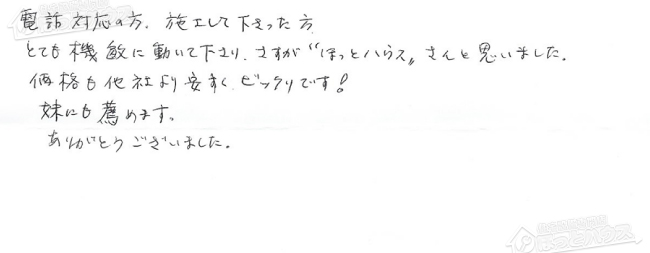 電話対応の方、施工して下さった方
とても機敏に動いて下さり、さすが"ほっとハウス"さんと思いました。
価格も他社より安すく、ビックリです!
妹にも薦めます。
ありがとうございました。
ほっとハウス